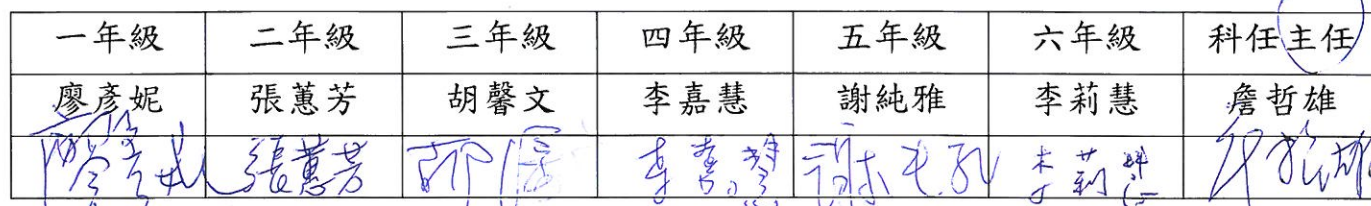 一年級 二年級 三年級 四年級 五年級 六年級 科任主任
廖彥妮 張蕙芳 胡馨文 李嘉慧 謝純雅 李莉慧 詹哲雄
廖彥妮 張蕙芳 李嘉慧 李莉慧